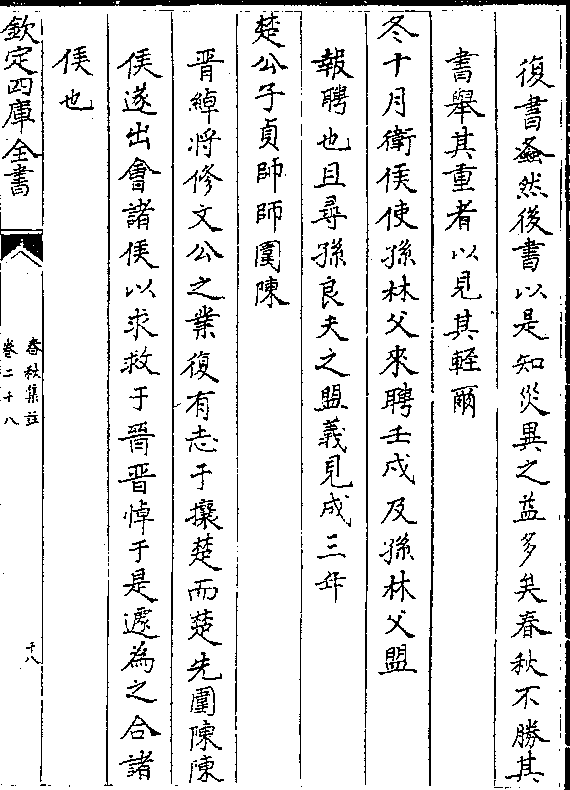 復書螽然後書以是知災異之益多矣春秋不勝其
書舉其重者以見其輕爾
冬十月衛侯使孫林父來聘壬戌及孫林父盟
報聘也且尋孫良夫之盟義見成三年
楚公子貞帥師圍陳
晉綽将修文公之業復有志于攘楚而楚先圍陳陳
侯遂出會諸侯以求救于晉晉悼于是遽為之合諸
侯也
欽定四庫全書
春秋集註
卷二十八
十八